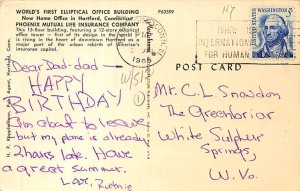 WORLD'S FIRST ELLIPTICAL OFFICE BUILDING
P63599
New Home Office in Hartford, Connecticut
PHOENIX MUTUAL LIFE INSURANCE COMPANY
This 13-floor building, featuring a 12-story elliptical
office tower is first of its design in the
world. It is in the heart of downtown Hartford and is a
major part of the urban rebirth of America's
insurance capital.
Dear Dad-dad
HAPPY
BIRTHDAY!
I'm about to leave
- but my plane is already
2 hours late. Have
a great summer.
Luv,
Ruthie
W/51
1
47
1968
INTERNATIONAL
FOR HUMAN
5¢
WASHINGTON
POST CARD
Mr. C. L. Snowdon
The Greenbriar
White Sulphur
Springs,
W. Va.